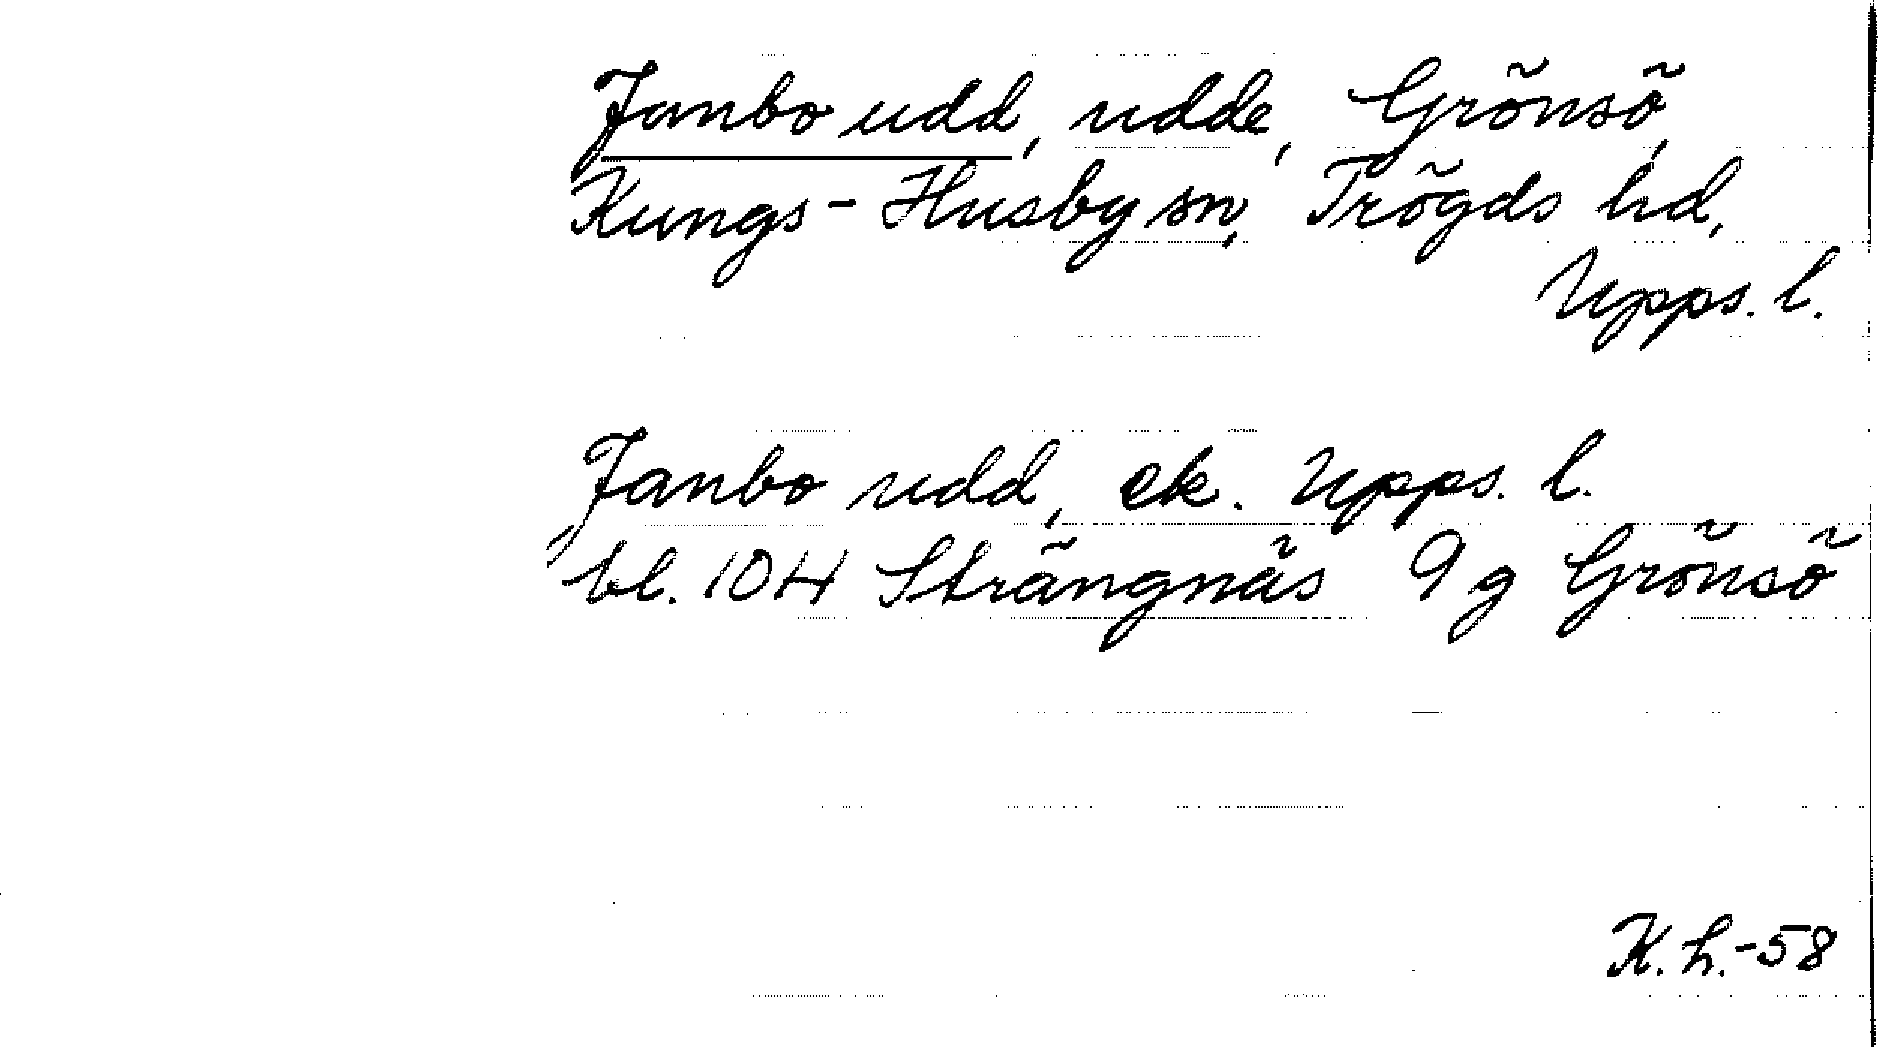 Janbo udd, udde, Grönsö,
Kungs-Husby sn, Trögds hd,
Upps. l.
Janbo udd, ek. Upps. l.
bl. 104 Strängnäs 9 g Grönsö
K. h.-58